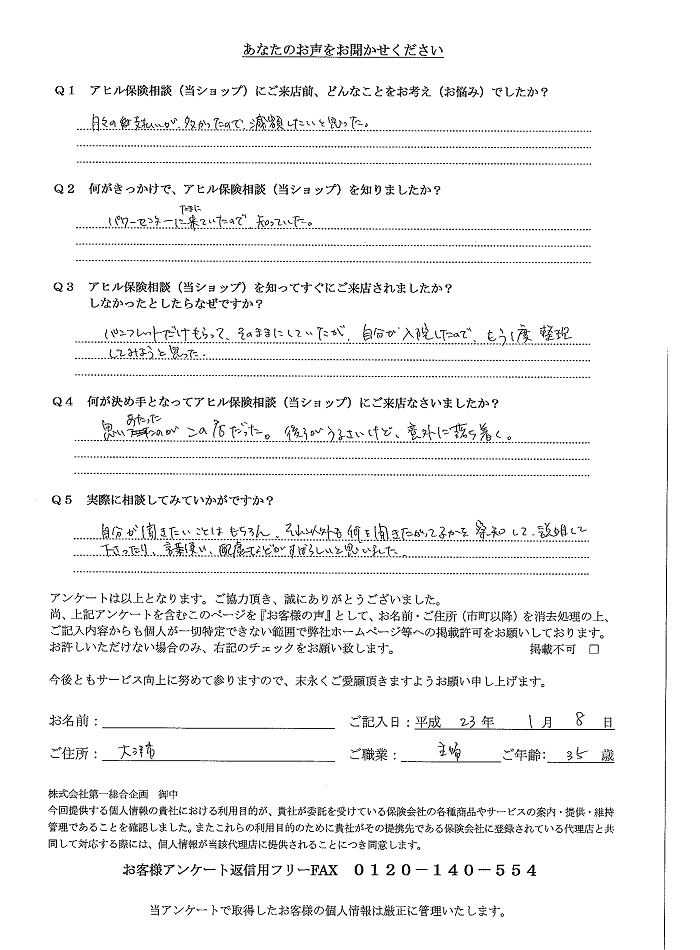 あなたのお声をお聞かせください
Q1 アヒル保険相談（当ショップ）にご来店前、どんなことをお考え（お悩み）でしたか？
月々の支払いが、多かったので、減額したいと思った。
Q2 何がきっかけで、アヒル保険相談（当ショップ）を知りましたか？
たまに
パワーセンターに来ていたので、知っていた。
Q3 アヒル保険相談（当ショップ）を知ってすぐにご来店されましたか？
しなかったとしたらなぜですか？
パンフレットだけもらって、そのままにしていたが、自分が入院したので、もう1度整理
してみようと思った。
Q4 何が決め手となってアヒル保険相談（当ショップ）にご来店なさいましたか？
あたった
思い のが この店だった。後ろがうるさいけど、意外に落ち着く。
Q5 実際に相談してみていかがですか？
自分が聞きたいことはもちろん、それ以外も何を聞きたがってるかを察知して、説明して
下さったり、言葉使い、配慮などがすばらしいと思いました。
アンケートは以上となります。ご協力頂き、誠にありがとうございました。
尚、上記アンケートを含むこのページを『お客様の声』として、お名前・ご住所（市町以降）を消去処理の上、
ご記入内容からも個人が一切特定できない範囲で弊社ホームページ等への掲載許可をお願いしております。
お許しいただけない場合のみ、右記のチェックをお願い致します。 掲載不可 □
今後ともサービス向上に努めて参りますので、末永くご愛顧頂きますようお願い申し上げます。
お名前： ご記入日：平成 23 年 1 月 8 日
ご住所： 大津市 ご職業： 主婦 ご年齢： 35 歳
株式会社第一総合企画 御中
今回提供する個人情報の貴社における利用目的が、貴社が委託を受けている保険会社の各種商品やサービスの案内・提供・維持
管理であることを確認しました。またこれらの利用目的のために貴社がその提携先である保険会社に登録されている代理店と共
同して対応する際には、個人情報が当該代理店に提供されることにつき同意します。
お客様アンケート返信用フリーFAX 0120－140－554
当アンケートで取得したお客様の個人情報は厳正に管理いたします。